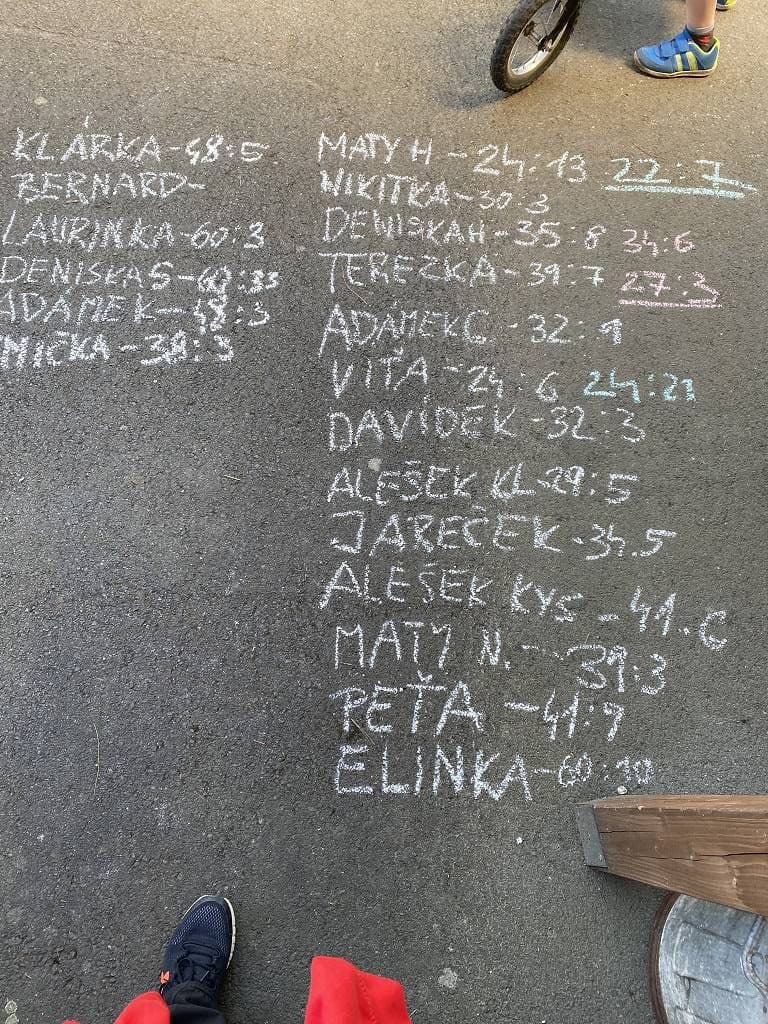 KLÁRKA-48:5
BERNARD-
LAURINKA-60:3
DENISKA S-60:33
ADÁMEK-48:3
MÍŠKA-39:3
MATY H-24:13 22:7
NIKITKA-30:3
DENISKA H-35:8 34:6
TEREZKA-39:7 27:3
ADÁMEK C-32:1
VÍŤA-24:6 24:21
DAVÍDEK-32:3
ALEŠEK KL-29:5
JAREČEK-34.5
ALEŠEK KYS-41.
MATY N.-39:3
PEŤA-41:9
ELINKA-60:30